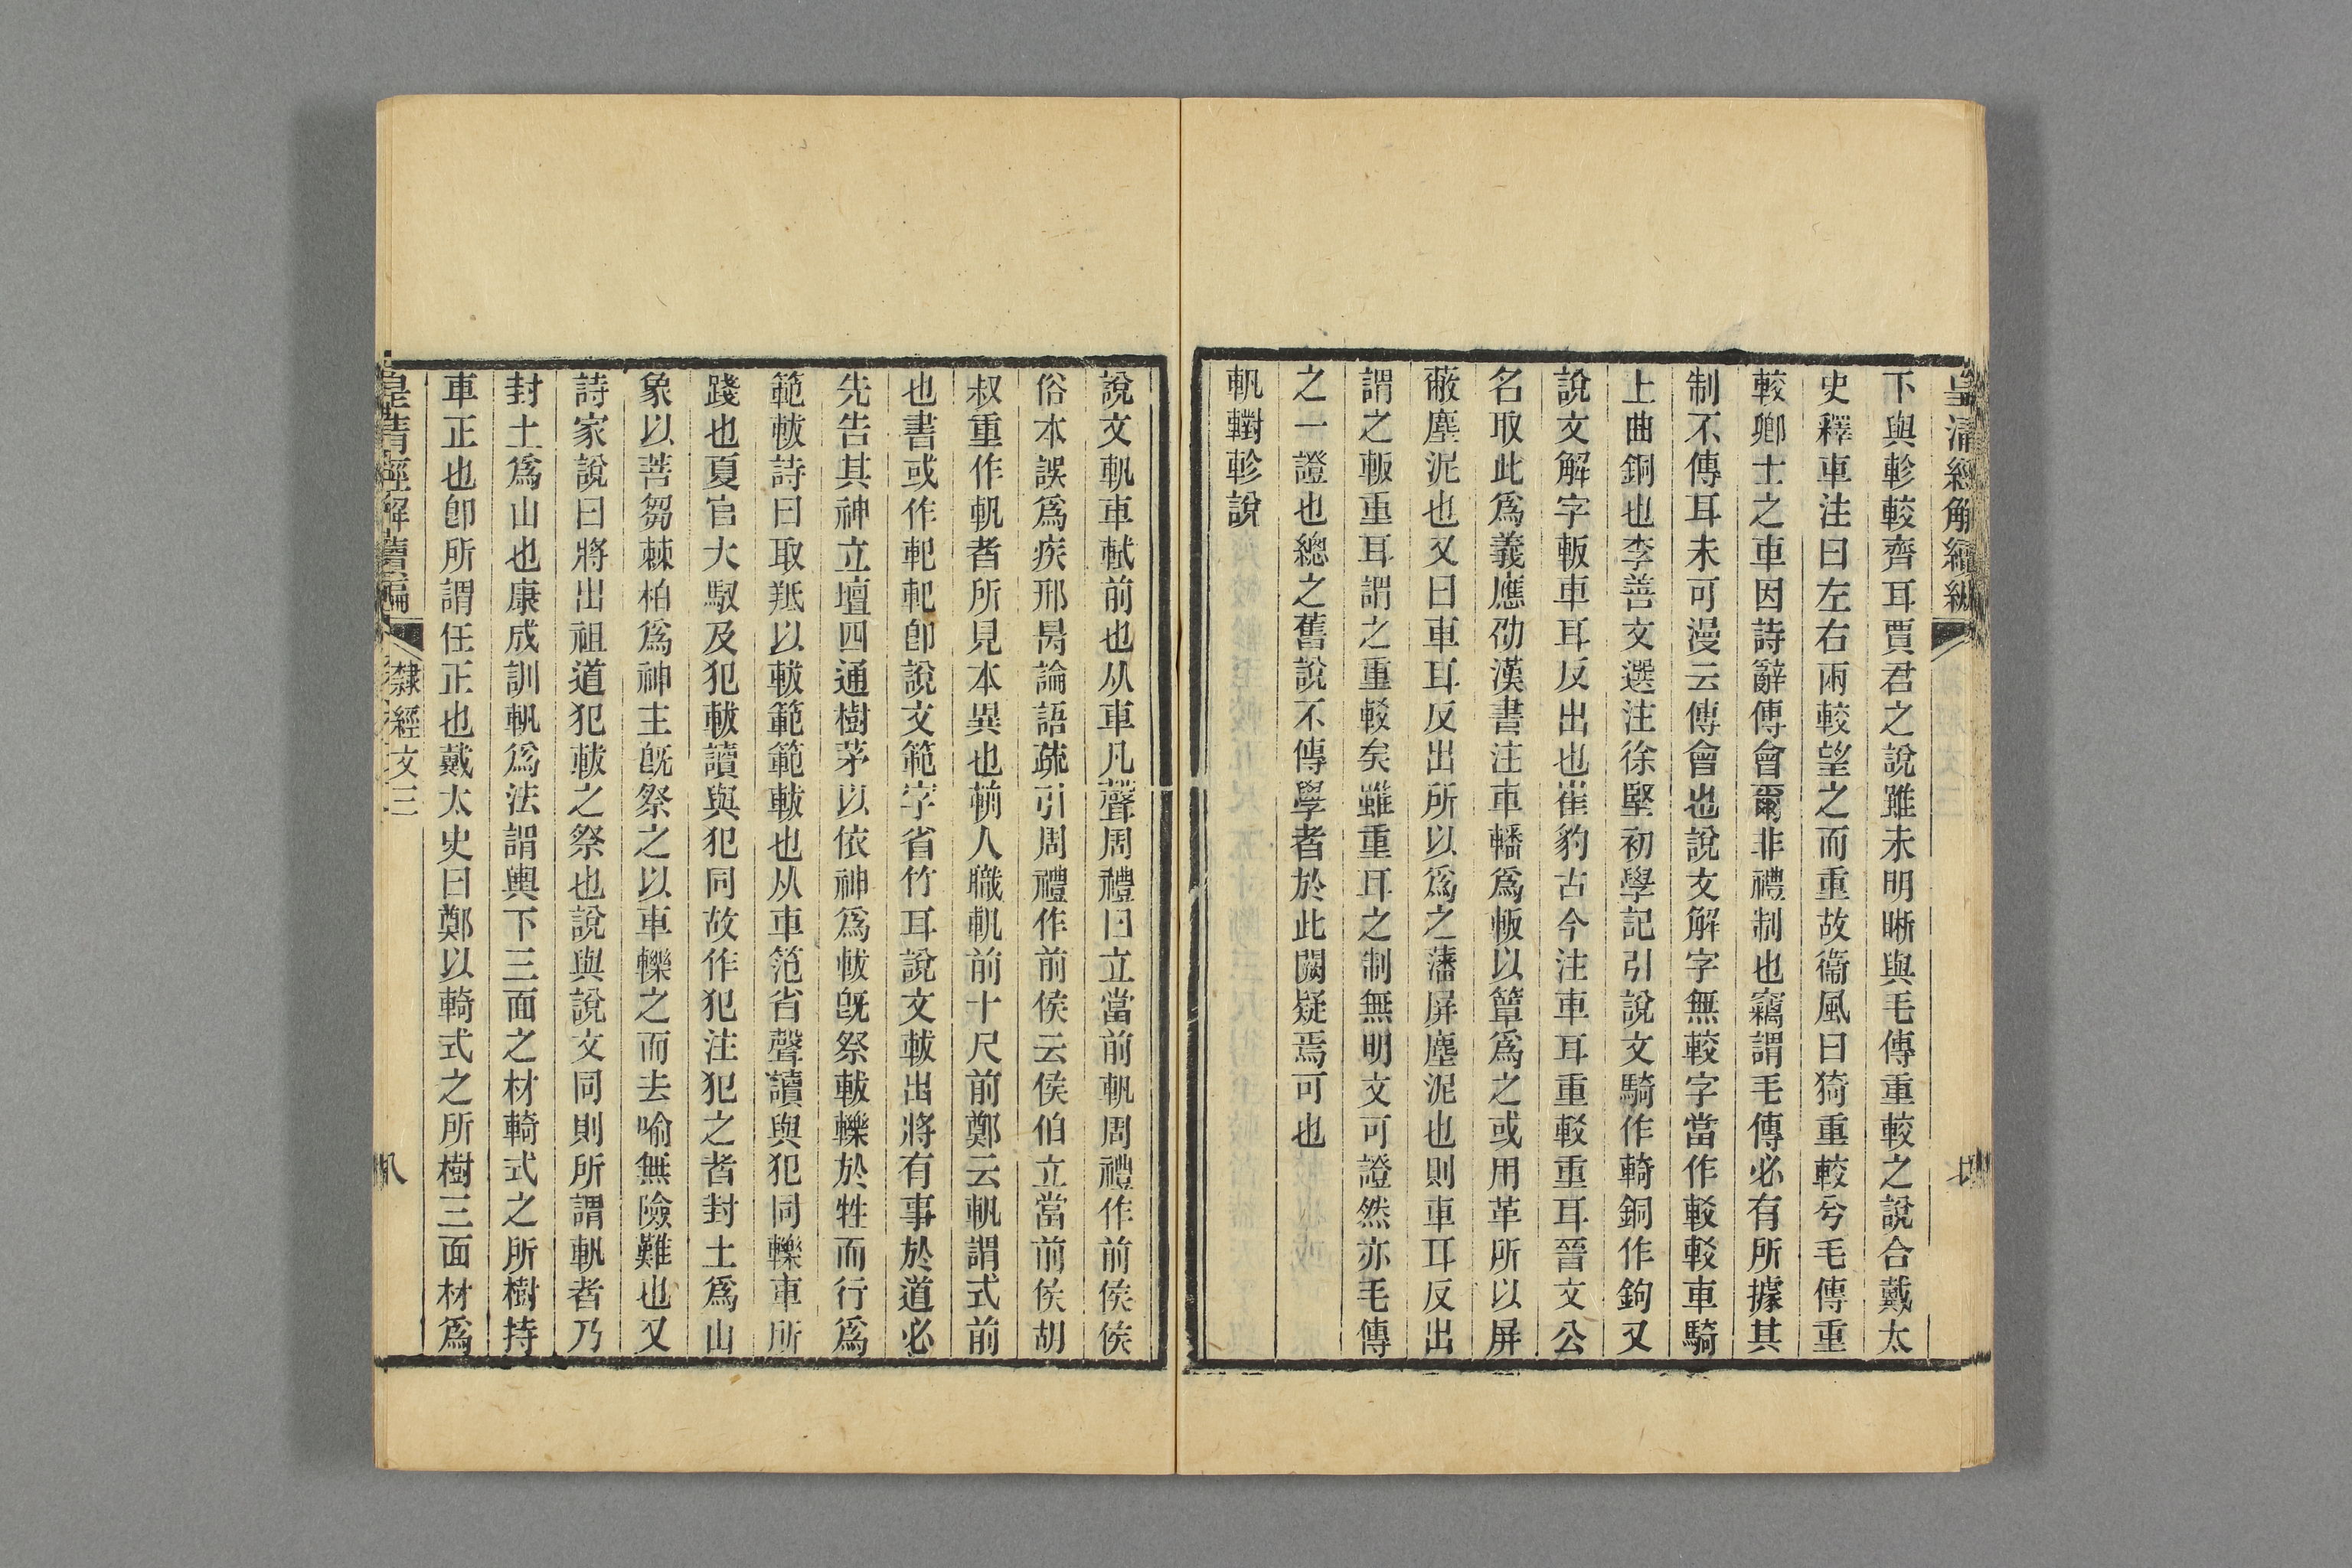 皇清經解續編
下與軫較齊耳賈君之說雖未明晰與毛傳重較之說合戴太
史釋車注曰左右兩較望之而重故衞風曰猗重較兮毛傳重
較卿士之車因詩辭傅會爾非禮制也竊謂毛傳必有所據其
制不傳耳未可漫云傅會也說文解字無較字當作䡈䡈車騎
上曲銅也李善文選注徐堅初學記引說文騎作輢銅作鉤又
說文解字䡊車耳反出也崔豹古今注車耳重䡈重耳晉文公
名取此爲義應劭漢書注車轓爲䡊以簟爲之或用革所以屏
蔽塵泥也又曰車耳反出所以爲之藩屏塵泥也則車耳反出
謂之䡊重耳謂之重䡈矣雖重耳之制無明文可證然亦毛傳
之一證也總之舊說不傳學者於此闕疑焉可也
軓轛軫說
說文軓車軾前也从車凡聲周禮曰立當前軓周禮作前侯侯
俗本誤爲疾邢昺論語疏引周禮作前侯云侯伯立當前侯胡
叔重作軓者所見本異也輈人職軓前十尺前鄭云軓謂式前
也書或作䡄䡄卽說文範字省竹耳說文軷出將有事於道必
先告其神立壇四通樹茅以依神爲軷旣祭軷轢於牲而行爲
範軷詩曰取羝以軷範範軷也从車笵省聲讀與犯同轢車所
踐也夏官大馭及犯軷讀與犯同故作犯注犯之者封土爲山
象以菩芻棘柏爲神主旣祭之以車轢之而去喻無險難也又
詩家說曰將出祖道犯軷之祭也說與說文同則所謂軓者乃
封土爲山也康成訓軓爲法謂輿下三面之材輢式之所樹持
車正也卽所謂任正也戴太史曰鄭以輢式之所樹三面材爲
皇清經解續編
隸經文三
八